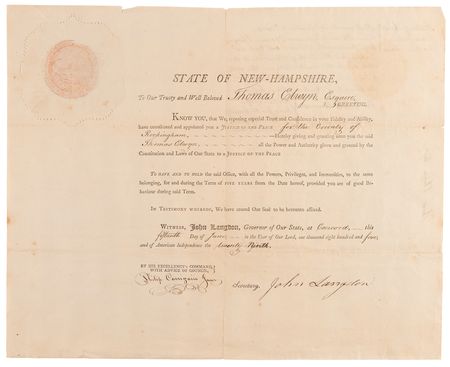 STATE OF NEW-HAMPSHIRE,
To Our Trusty and Well Beloved Thomas Elwyn, Esquire,
GREETING.
KNOW YOU, that We, reposing especial Trust and Confidence in your Fidelity and Ability,
have constituted and appointed you a JUSTICE OF THE PEACE for the County of
Rockingham, Hereby giving and granting unto you the said
Thomas Elwyn, all the Power and Authority given and granted by the
Constitution and Laws of Our State to a JUSTICE OF THE PEACE
TO HAVE AND TO HOLD the said Office, with all the Powers, Privileges, and Immunities, to the same
belonging, for and during the Term of FIVE YEARS from the Date hereof, provided you are of good Be-
haviour during said Term.
IN TESTIMONY WHEREOF, We have caused Our Seal to be hereunto affixed.
WITNESS, John Langdon, Governor of Our State, at Concord, this
fifteenth Day of June in the Year of Our Lord, one thousand eight hundred and
and of American Independence the Ninth.
BY HIS EXCELLENCY'S COMMAND,
WITH ADVICE OF COUNCIL,
Philip Carrigain Jun
Secretary.
John Langdon